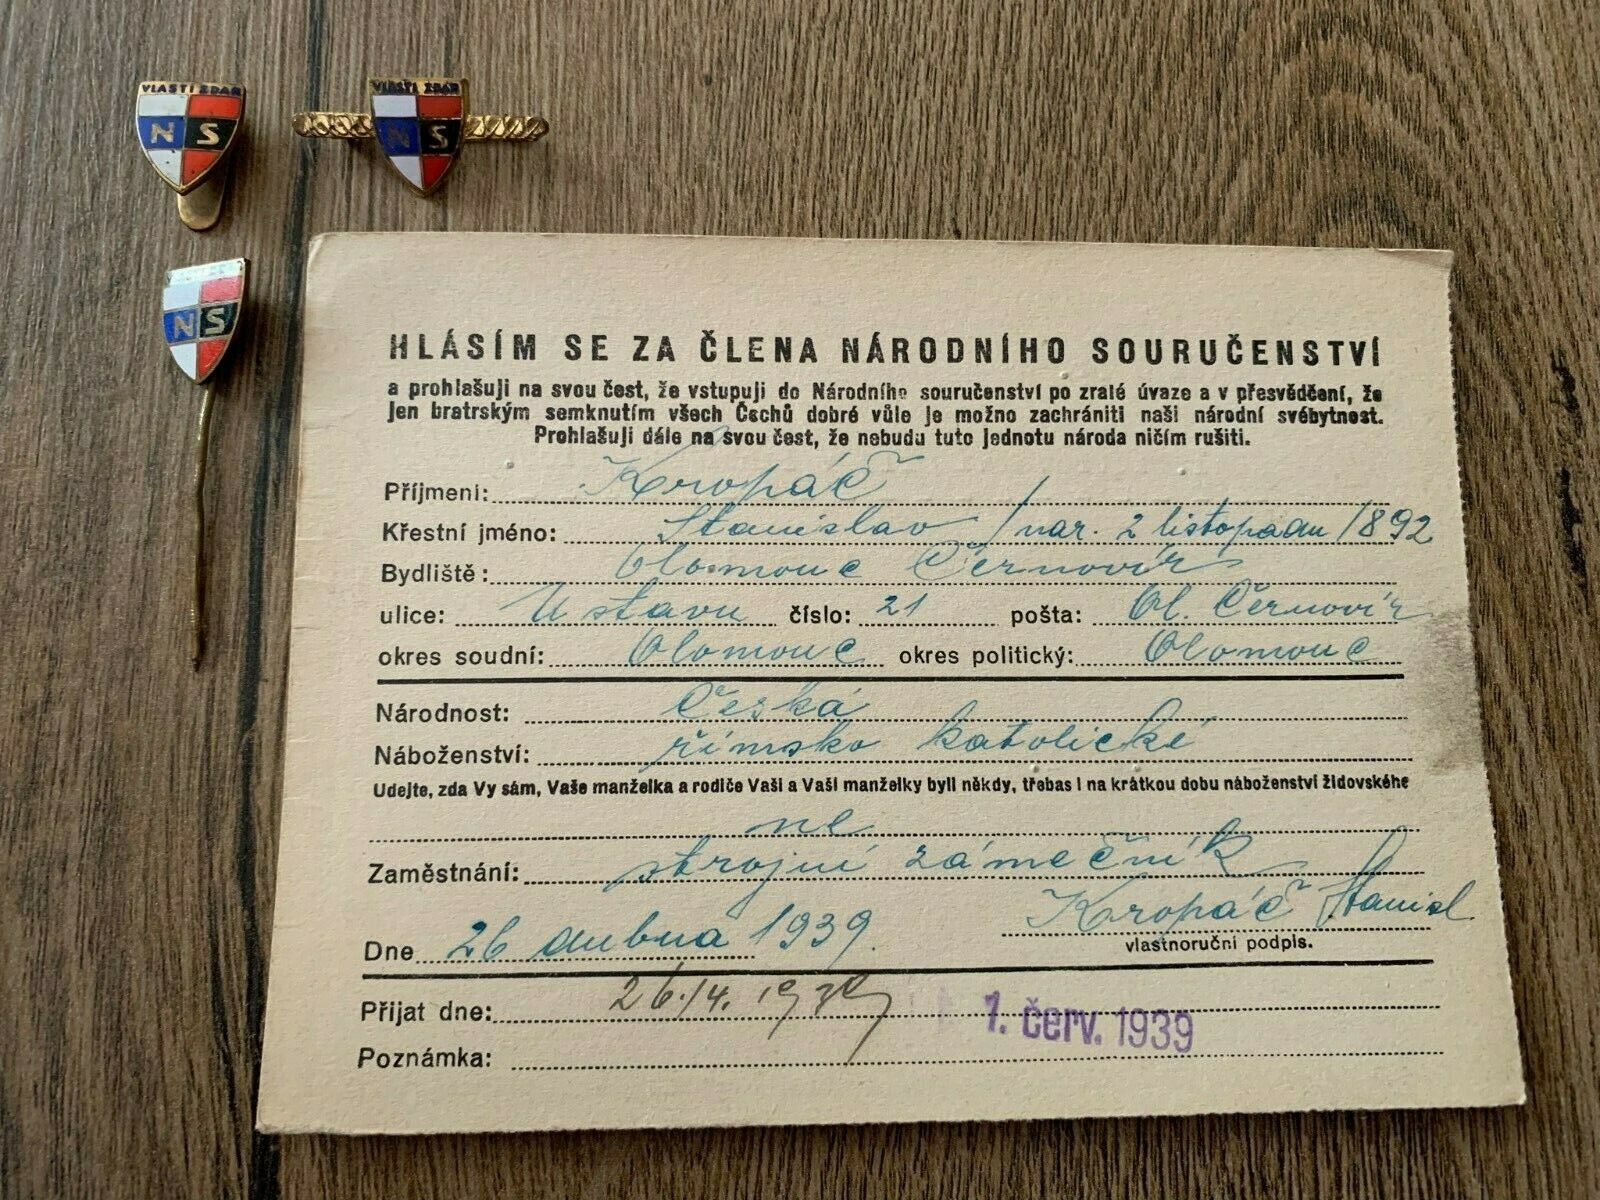 VLASTI ZDAR
N S
VLASTI ZDAR
N S
N S
HLÁSÍM SE ZA ČLENA NÁRODNÍHO SOURUČENSTVÍ
a prohlašuji na svou čest, že vstupuji do Národního souručenství po zralé úvaze a v přesvědčení, že
jen bratrským semknutím všech Čechů dobré vůle je možno zachrániti naši národní svébytnost.
Prohlašuji dále na svou čest, že nebudu tuto jednotu národa ničím rušiti.
Příjmení: Kropáč
Křestní jméno: Stanislav / nar. 2 listopadu 1892
Bydliště: Olomouc Černovír
ulice: Ustavu číslo: 21 pošta: Ol. Černovír
okres soudní: Olomouc okres politický: Olomouc
Národnost: Česká
Náboženství: římsko katolické
Udejte, zda Vy sám, Vaše manželka a rodiče Vaši a Vaší manželky byli někdy, třebas i na krátkou dobu náboženství židovského
ne
Zaměstnání: strojní zámečník
Kropáč Stanisl.
Dne 26 dubna 1939. vlastnoruční podpis.
Přijat dne: 26./4. 1939 1. červ. 1939
Poznámka: